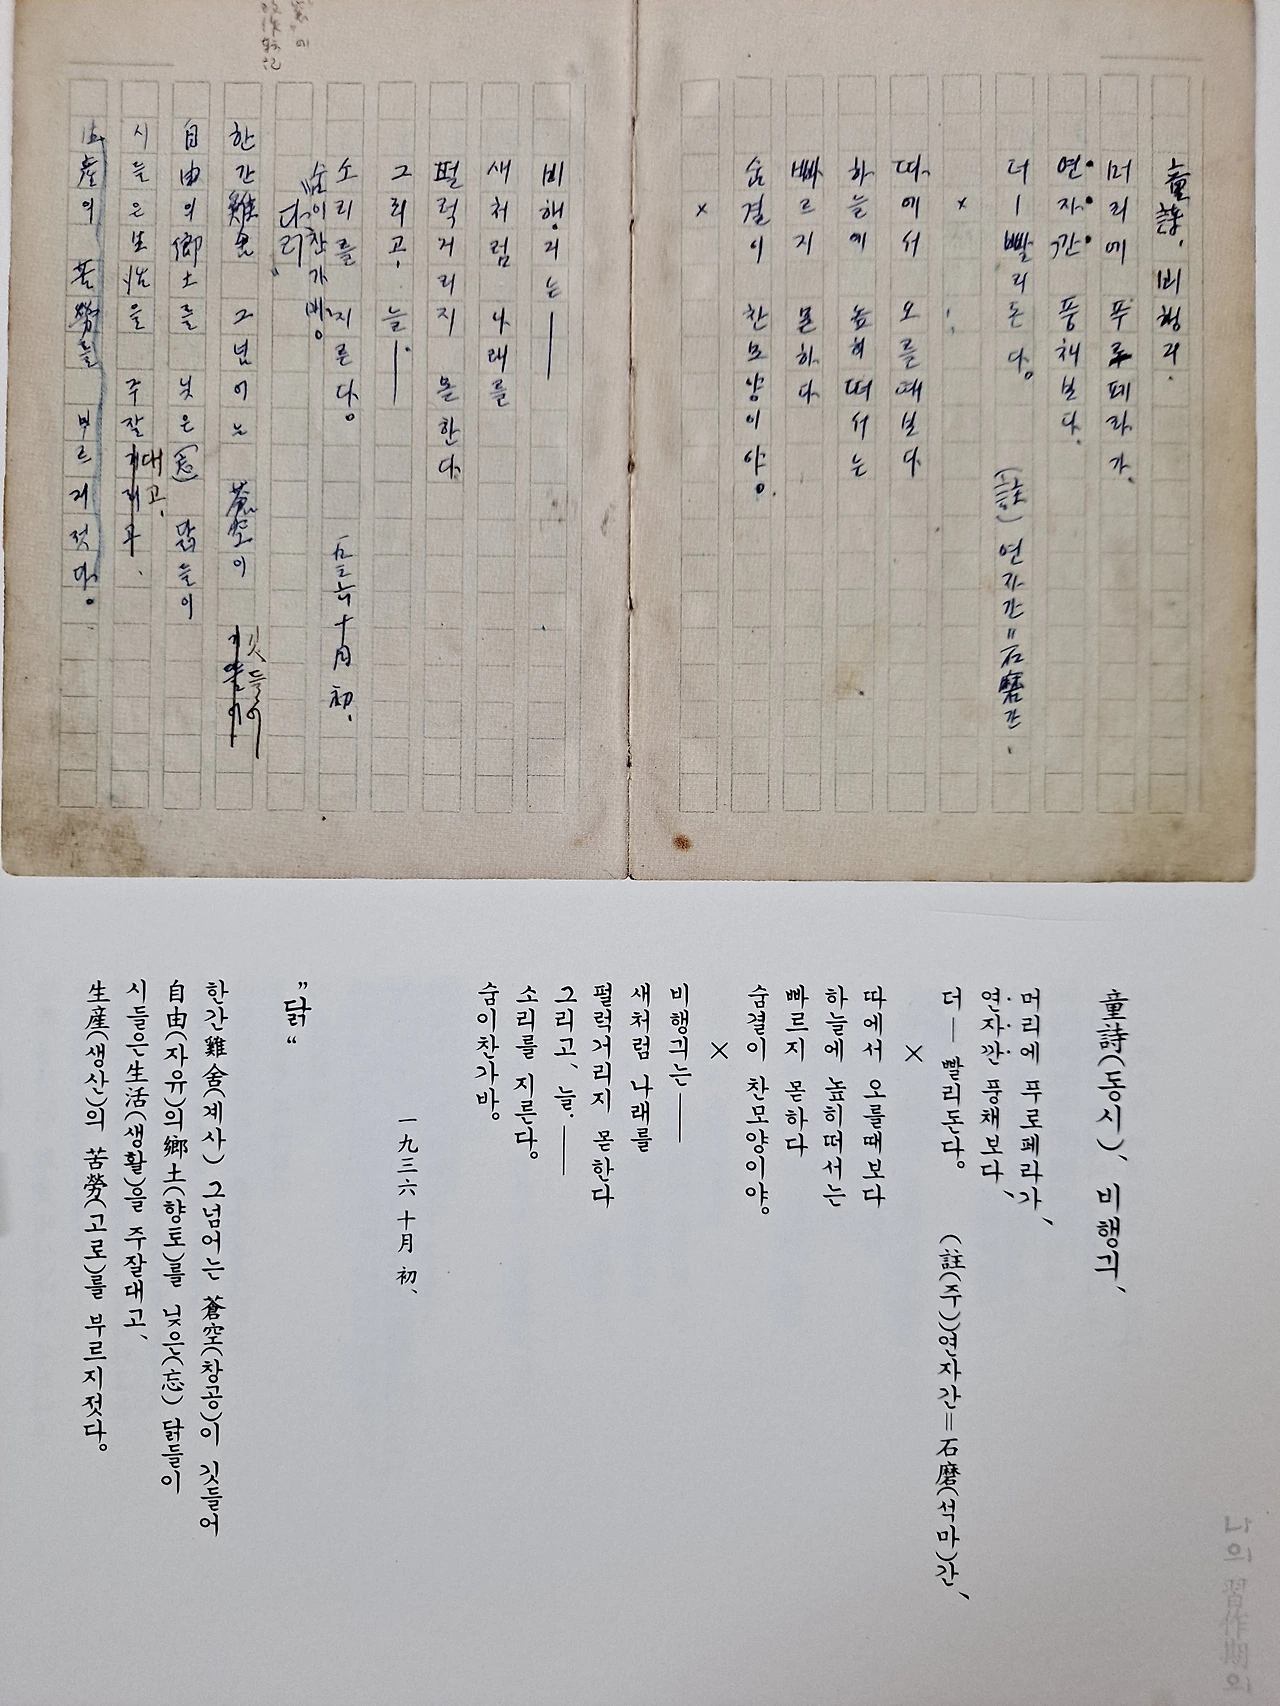 童詩、비행긔、
머리에 푸로페라가、
연자간 풍채보다、
더ㅣ빨리돈다。 (註)연자간=石磨간、
×
따에서 오를때보다
하늘에 높히떠서는
빠르지 몯하다
숨결이 찬모양이야。
×
비행긔는——
새처럼 나래를
펄럭거리지 몯한다
그리고、늘、——
소리를 지른다。
숨이찬가바。 一九三六 十月 初、
"닭"
한간鷄舍 그넘어는 蒼空이 깃들어
自由의鄕土를 닞은(忘) 닭들이
시들은生活을 주잘대고、
生産의 苦勞를 부르지젓다。
童詩(동시)、비행긔、
머리에 푸로페라가、
연자깐 풍채보다、
더ㅣ빨리돈다。 (註(주))연자간=石磨(석마)간、
×
따에서 오를때보다
하늘에 높히떠서는
빠르지 몯하다
숨결이 찬모양이야。
×
비행긔는——
새처럼 나래를
펄럭거리지 몯한다
그리고、늘、——
소리를 지른다。
숨이찬가바。
一九三六 十月 初、
"닭"
한간鷄舍(계사) 그넘어는 蒼空(창공)이 깃들어
自由(자유)의鄕土(향토)를 닞은(忘) 닭들이
시들은生活(생활)을 주잘대고、
生産(생산)의 苦勞(고로)를 부르지젓다。
나의 習作期의